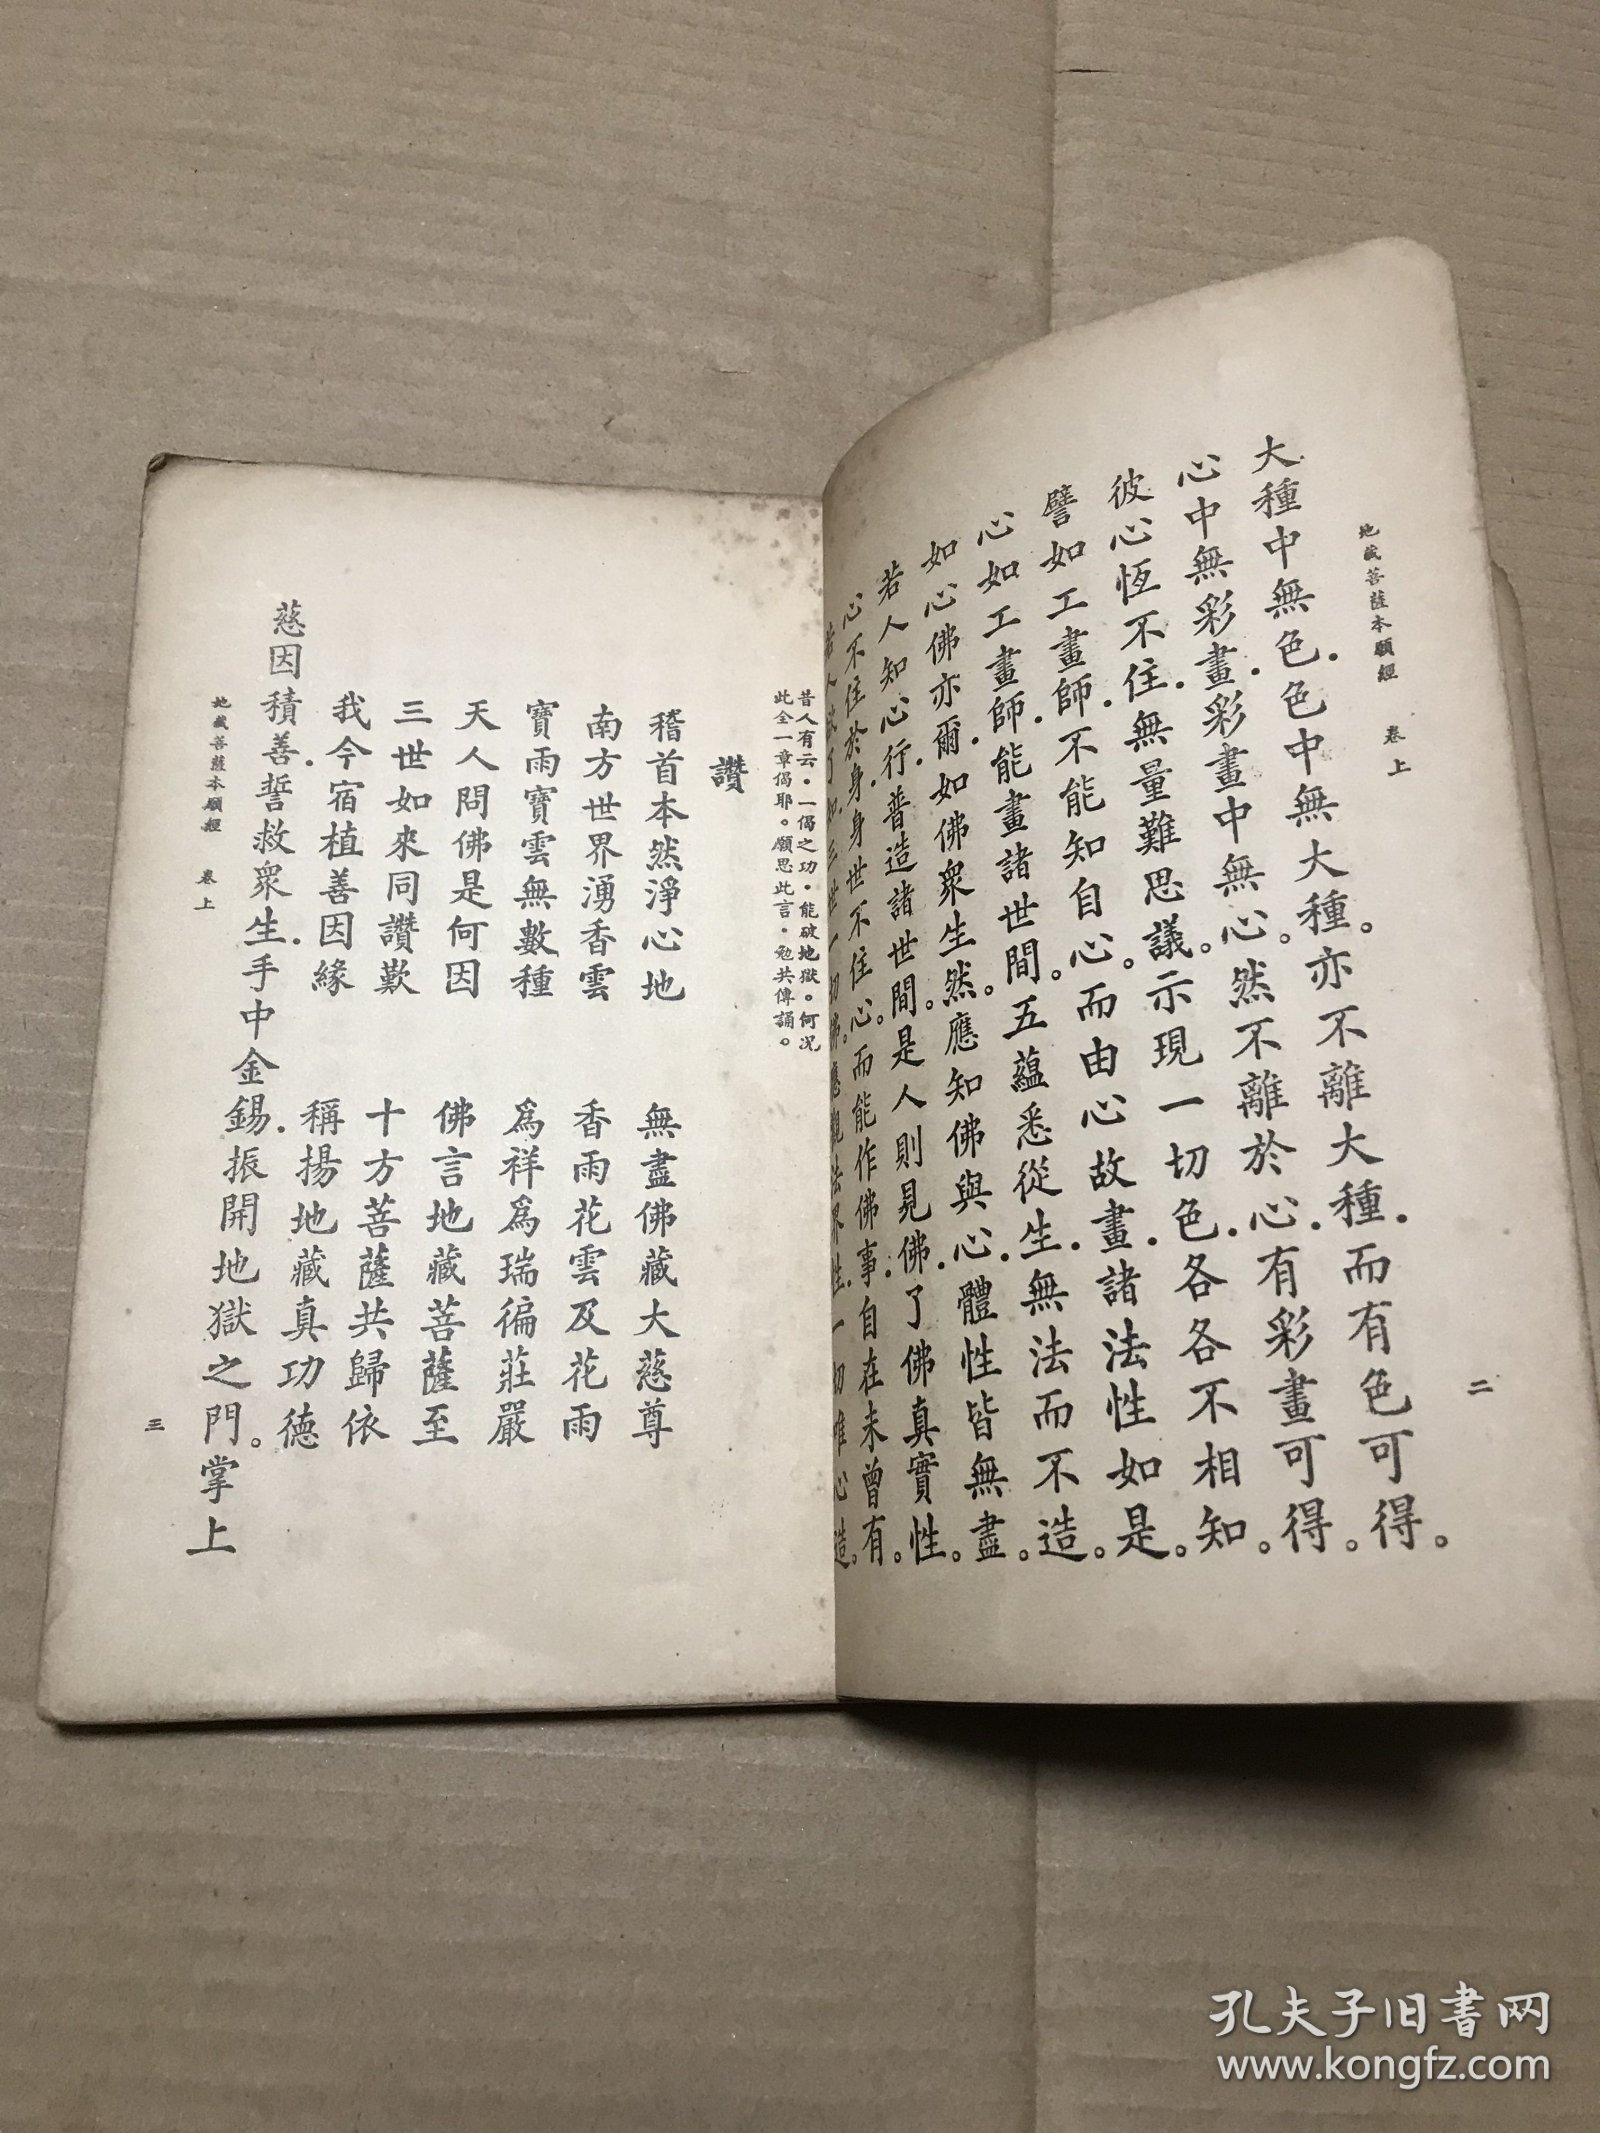 地藏菩薩本願經 卷上 二
大種中無色．色中無大種。亦不離大種．而有色可得。
心中無彩畫．彩畫中無心。然不離於心．有彩畫可得。
彼心恆不住．無量難思議。示現一切色．各各不相知。
譬如工畫師．不能知自心。而由心故畫．諸法性如是。
心如工畫師．能畫諸世間。五蘊悉從生．無法而不造。
如心佛亦爾．如佛衆生然。應知佛與心．體性皆無盡。
若人知心行．普造諸世間。是人則見佛．了佛真實性。
心不住於身．身世不住心。而能作佛事．自在未曾有。
若人欲了知．三世一切佛。應觀法界性．一切唯心造。
昔人有云．一偈之功．能破地獄。何况
此全一章偈耶。願思此言．勉共傳誦。
讚
稽首本然淨心地 無盡佛藏大慈尊
南方世界湧香雲 香雨花雲及花雨
寶雨寶雲無數種 爲祥爲瑞徧莊嚴
天人問佛是何因 佛言地藏菩薩至
三世如來同讚歎 十方菩薩共歸依
我今宿植善因緣 稱揚地藏真功德
慈因積善．誓救衆生．手中金錫．振開地獄之門。掌上
地藏菩薩本願經 卷上 三
孔夫子旧书网
www.kongfz.com